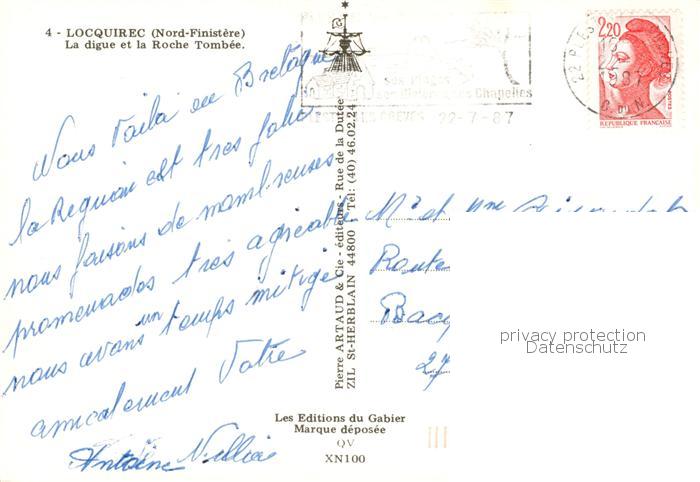 4 - LOCQUIREC (Nord-Finistère)
La digue et la Roche Tombée.
Nous voila en Bretagne
la Region est tres jolie
nous faisons de nombreuses
promenades tres agréable
nous avons un temps mitigé
amicalement Votre
Antoine
Pierre ARTAUD & Cie - éditeurs - Rue de la Dutée
ZIL St-HERBLAIN 44800 Tél: (40) 46.02.24
Les Editions du Gabier
Marque déposée
QV
XN100
Ses Plages
Chapelles
LES GREVES 22-7-87
2,20
REPUBLIQUE FRANÇAISE
1987
Mr et Mme
Route
27
privacy protection
Datenschutz